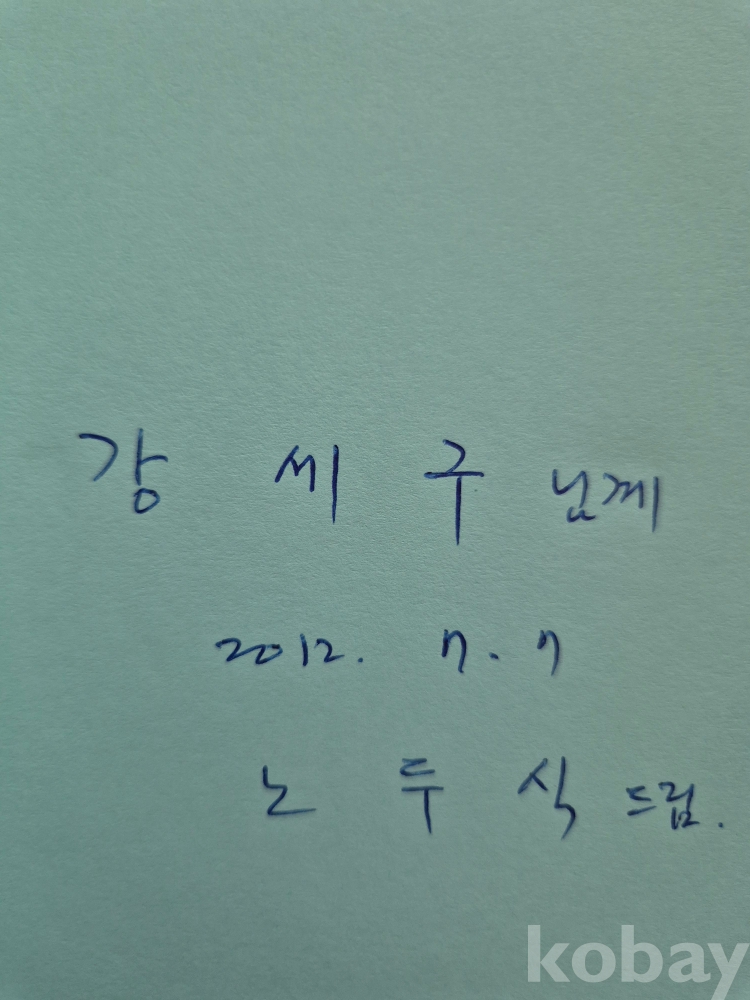 강 세 구 님께
2012. 7. 7
노 두 식 드림.
kobay